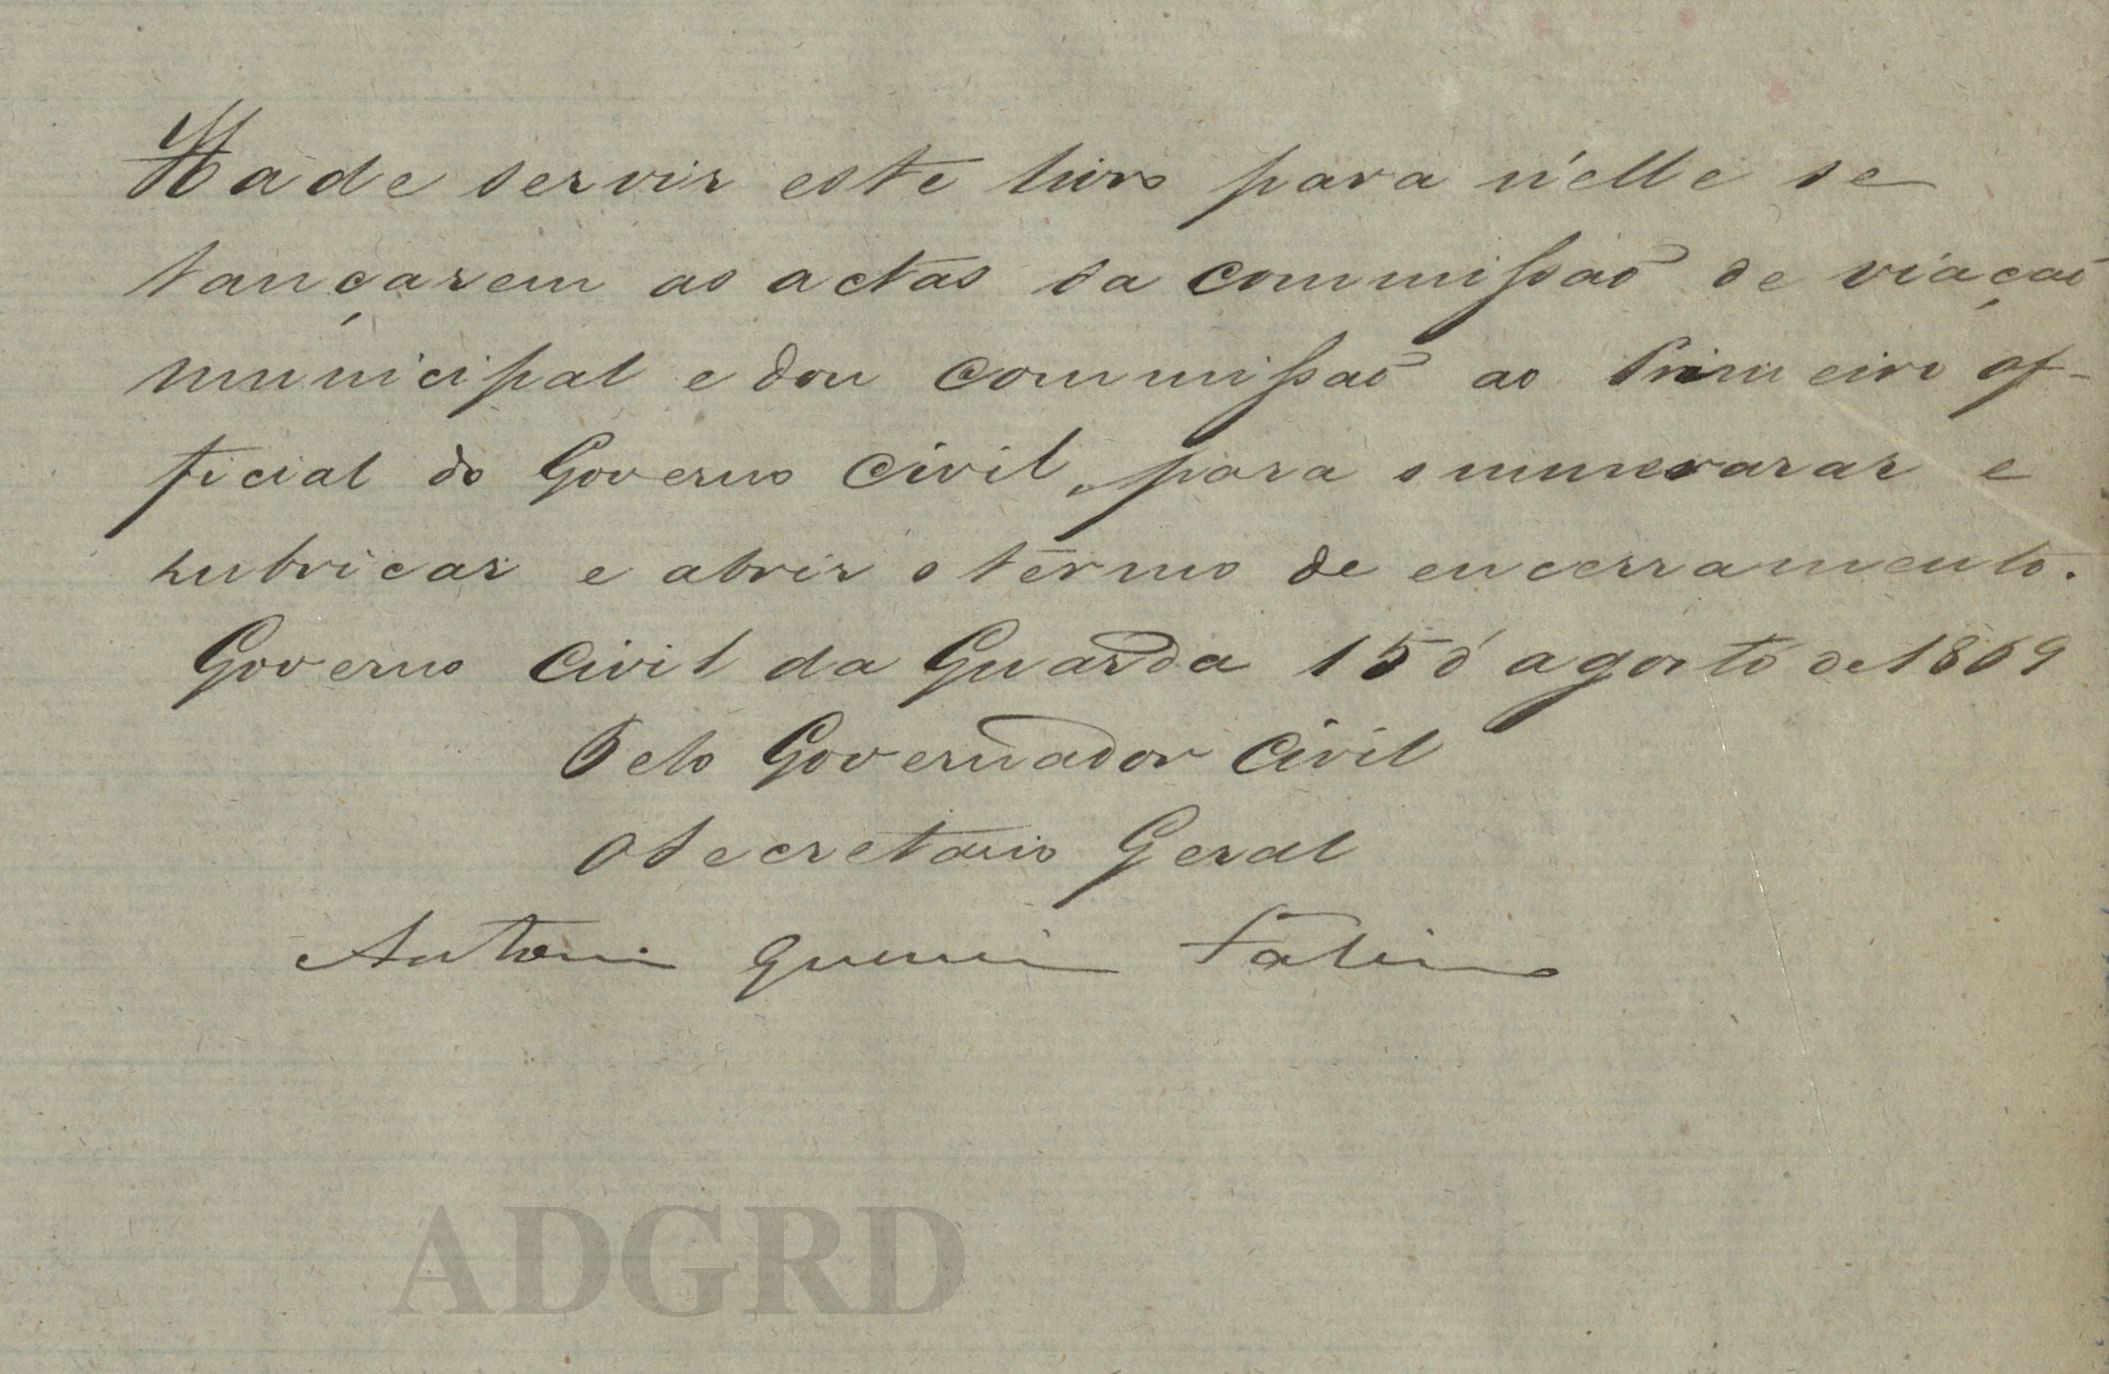 Hade servir este livro para n'elle se
lançarem as actas da commissão de viação
municipal e dou commissão ao Primeiro of-
ficial do Governo Civil, para o numerarar e
rubricar e abrir o termo de encerramento.
Governo Civil da Guarda 15 d'agosto de 1869
Pelo Governador Civil
O Secretario Geral
Antonio
ADGRD